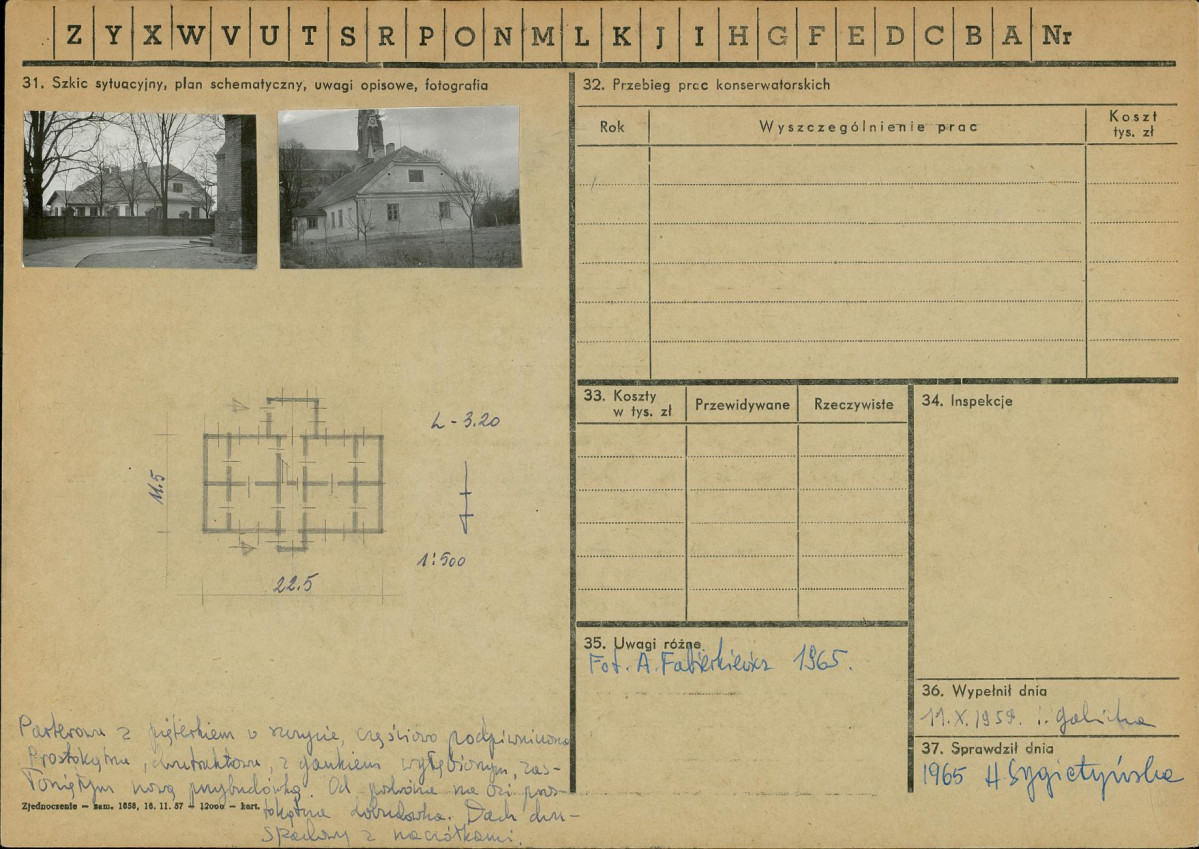 Z Y X W V U T S R P O N M L K J I H G F E D C B A Nr
31. Szkic sytuacyjny, plan schematyczny, uwagi opisowe, fotografia
L - 3.20
11.5
1:500
22.5
Parterowa z pięterkiem w szczycie, częściowo podpiwniczona
Prostokątna, dwutraktowa, z gankiem wgłębionym, zas-
łoniętym nową przybudówką. Od południa na osi pros-
tokątna dobudówka. Dach dwu-
spadowy z naczółkami.
Zjednoczenie – zam. 1658, 16. 11. 57 – 12000 – kart.
32. Przebieg prac konserwatorskich
Rok
Wyszczególnienie prac
Koszt
tys. zł
33. Koszty
w tys. zł
Przewidywane
Rzeczywiste
34. Inspekcje
35. Uwagi różne
Fot. A. Fabierkiewicz 1965.
36. Wypełnił dnia
11.X.1959. I. Galicka
37. Sprawdził dnia
1965 H Sygietyńska